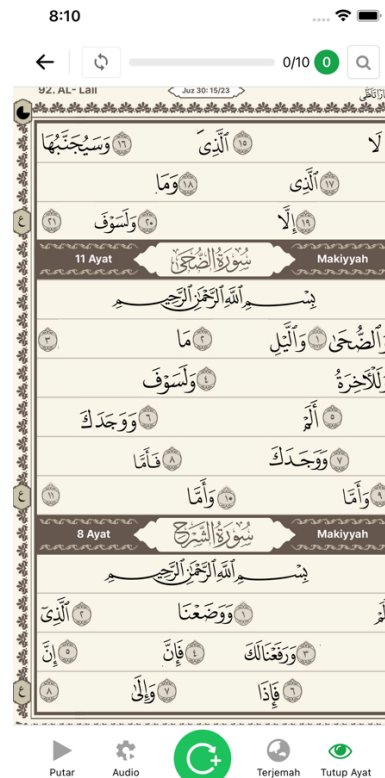 8:10
0/10 0
92. AL- Lail Juz 30: 15/23
لَا ١٥ ٱلَّذِى ١٦ وَسَيُجَنَّبُهَا
١٧ ٱلَّذِى ١٨ وَمَا
١٩ إِلَّا ٢٠ وَلَسَوْفَ ٢١
ع
11 Ayat سُورَةُ الضُّحَىٰ Makiyyah
بِسْمِ ٱللَّهِ ٱلرَّحْمَٰنِ ٱلرَّحِيمِ
وَٱلضُّحَىٰ ١ وَٱلَّيْلِ ٢ مَا ٣
وَلَلْآخِرَةُ ٤ وَلَسَوْفَ
٥ أَلَمْ ٦ وَوَجَدَكَ
٧ وَوَجَدَكَ ٨ فَأَمَّا
٩ وَأَمَّا ١٠ وَأَمَّا ١١
ع
8 Ayat سُورَةُ الشَّرْحِ Makiyyah
بِسْمِ ٱللَّهِ ٱلرَّحْمَٰنِ ٱلرَّحِيمِ
١ وَوَضَعْنَا ٢ ٱلَّذِىٓ
٣ وَرَفَعْنَا لَكَ ٤ فَإِنَّ ٥ إِنَّ
٦ فَإِذَا ٧ وَإِلَىٰ ٨
ع
Putar Audio Terjemah Tutup Ayat